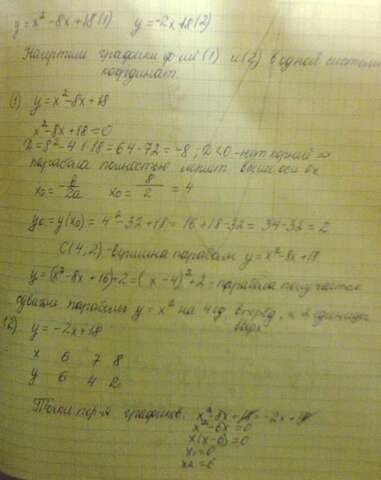 y = x² - 8x + 18 (1) y = -2x + 18 (2)
Начертим графики ф-ий (1) и (2) в одной системе
координат.
(1) y = x² - 8x + 18
x² - 8x + 18 = 0
D = 8² - 4·1·18 = 64 - 72 = -8; D < 0 - нет корней =>
парабола полностью лежит выше оси Ox
x₀ = -b/2a x₀ = 8/2 = 4
y₀ = y(x₀) = 4² - 32 + 18 = 16 + 18 - 32 = 34 - 32 = 2
C(4,2) - вершина параболы y = x² - 8x + 18
y = (x² - 8x + 16) + 2 = (x - 4)² + 2 - парабола получается
сдвигом параболы y = x² на 4 ед. вперед, и 2 единицы
вверх
(2) y = -2x + 18
x 6 7 8
y 6 4 2
Точки пер-я графиков: x² - 8x + 18 = -2x + 18
x² - 6x = 0
x(x - 6) = 0
x₁ = 0
x₂ = 6